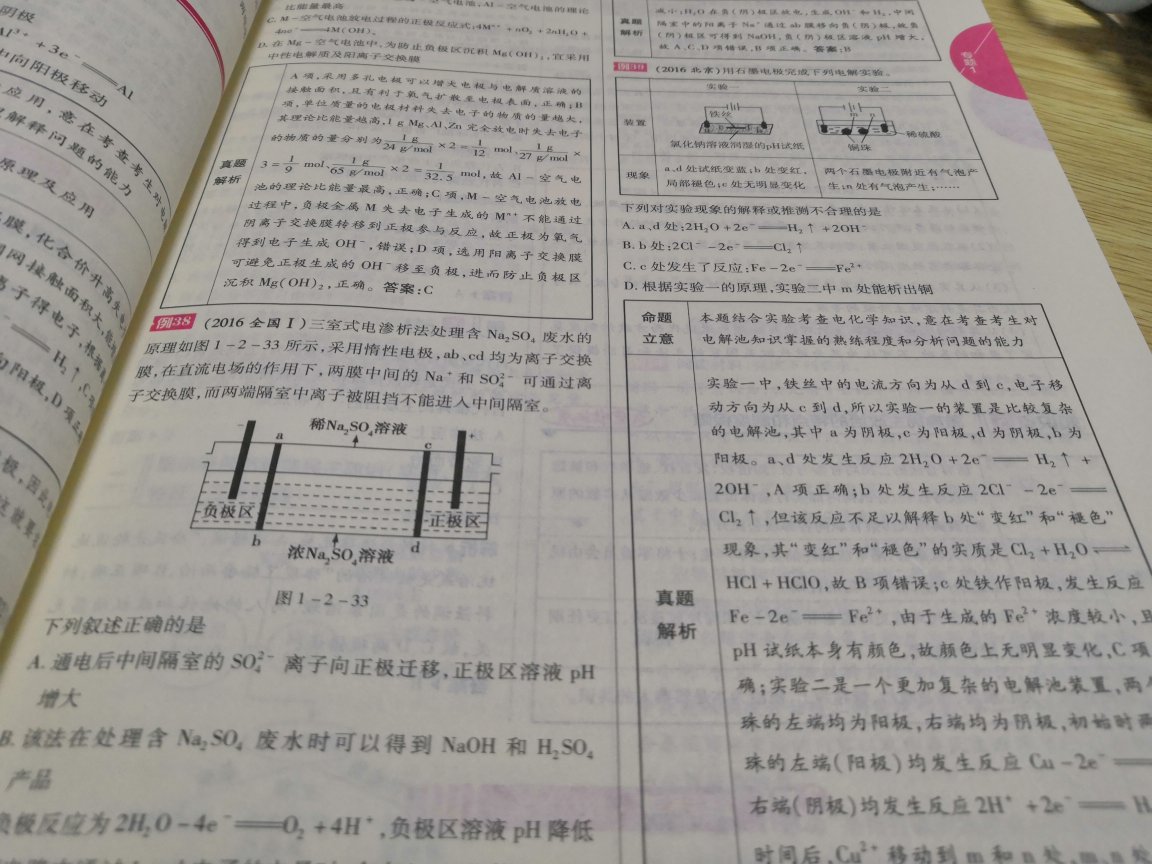 阴极
Al³⁺ + 3e⁻ ══ Al
中向阳极移动
应用，意在考查考生对电
解释问题的能力
原理及应用
膜，化合价升高失电
同网接触面积大，能
离子得电子，根据
══ H₂↑，C项
向阳极，D项正
比能量最高
C. M－空气电池放电过程的正极反应式：4Mⁿ⁺ + nO₂ + 2nH₂O +
4ne⁻ ══ 4M(OH)ₙ
D. 在 Mg－空气电池中，为防止负极区沉积 Mg(OH)₂，宜采用
中性电解质及阳离子交换膜
真题
解析
A 项，采用多孔电极可以增大电极与电解质溶液的
接触面积，且有利于氧气扩散至电极表面，正确；B
项，单位质量的电极材料失去电子的物质的量越大，
其理论比能量越高，1 g Mg、Al、Zn 完全放电时失去电子
的物质的量分别为 1 g/24 g/mol × 2 = 1/12 mol、1 g/27 g/mol ×
3 = 1/9 mol、1 g/65 g/mol × 2 = 1/32.5 mol，故 Al－空气电
池的理论比能量最高，正确；C 项，M－空气电池放电
过程中，负极金属 M 失去电子生成的 Mⁿ⁺ 不能通过
阴离子交换膜转移到正极参与反应，故正极为氧气
得到电子生成 OH⁻，错误；D 项，选用阳离子交换膜
可避免正极生成的 OH⁻ 移至负极，进而防止负极区
沉积 Mg(OH)₂，正确。答案：C
例38 (2016 全国Ⅰ)三室式电渗析法处理含 Na₂SO₄ 废水的
原理如图 1－2－33 所示，采用惰性电极，ab、cd 均为离子交换
膜，在直流电场的作用下，两膜中间的 Na⁺ 和 SO₄²⁻ 可通过离
子交换膜，而两端隔室中离子被阻挡不能进入中间隔室。
稀Na₂SO₄溶液
－ a c ＋
负极区 正极区
b d
浓Na₂SO₄溶液
图 1－2－33
下列叙述正确的是
A. 通电后中间隔室的 SO₄²⁻ 离子向正极迁移，正极区溶液 pH
增大
B. 该法在处理含 Na₂SO₄ 废水时可以得到 NaOH 和 H₂SO₄
产品
负极反应为 2H₂O－4e⁻ ══ O₂ + 4H⁺，负极区溶液 pH 降低
真题
解析
隔室中的阳离子 Na⁺ 通过 ab 膜移向负(阴)极，故负
(阴)极区可得到 NaOH，负(阴)极区溶液 pH 增大，
故 A、C、D 项错误，B 项正确。答案：B
专题1
例39 (2016 北京)用石墨电极完成下列电解实验。
实验一 实验二
装置
铁丝
氯化钠溶液润湿的pH试纸
m n
稀硫酸
铜珠
现象
a、d 处试纸变蓝；b 处变红，
局部褪色；c 处无明显变化
两个石墨电极附近有气泡产
生；n 处有气泡产生；……
下列对实验现象的解释或推测不合理的是
A. a、d 处：2H₂O + 2e⁻ ══ H₂↑ + 2OH⁻
B. b 处：2Cl⁻ － 2e⁻ ══ Cl₂↑
C. c 处发生了反应：Fe－2e⁻ ══ Fe²⁺
D. 根据实验一的原理，实验二中 m 处能析出铜
命题
立意
本题结合实验考查电化学知识，意在考查考生对
电解池知识掌握的熟练程度和分析问题的能力
真题
解析
实验一中，铁丝中的电流方向为从 d 到 c，电子移
动方向为从 c 到 d，所以实验一的装置是比较复杂
的电解池，其中 a 为阴极，c 为阳极，d 为阴极，b 为
阳极。a、d 处发生反应 2H₂O + 2e⁻ ══ H₂↑ +
2OH⁻，A 项正确；b 处发生反应 2Cl⁻ － 2e⁻ ══
Cl₂↑，但该反应不足以解释 b 处“变红”和“褪色”
现象，其“变红”和“褪色”的实质是 Cl₂ + H₂O ⇌
HCl + HClO，故 B 项错误；c 处铁作阳极，发生反应
Fe－2e⁻ ══ Fe²⁺，由于生成的 Fe²⁺ 浓度较小，且
pH 试纸本身有颜色，故颜色上无明显变化，C 项
确；实验二是一个更加复杂的电解池装置，两个
珠的左端均为阳极，右端均为阴极，初始时两
珠的左端(阳极)均发生反应 Cu－2e⁻ ══
右端(阴极)均发生反应 2H⁺ + 2e⁻ ══ H
时间后，Cu²⁺ 移动到 m 和 n 处